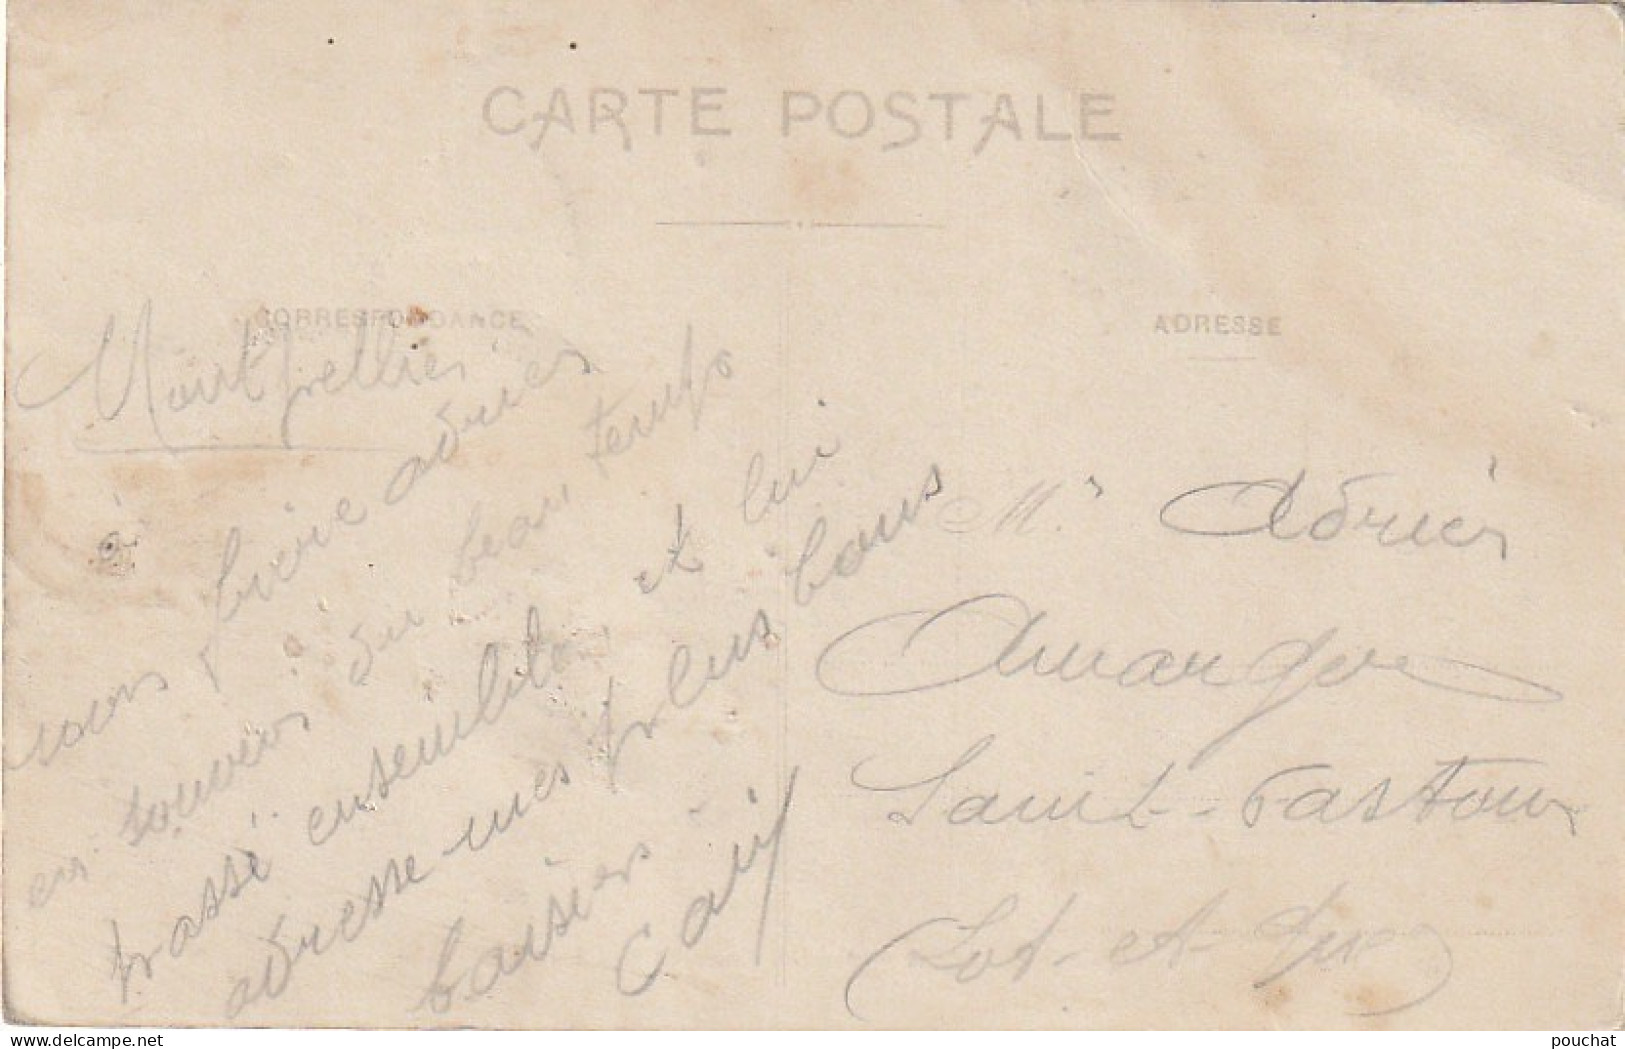 CARTE POSTALE
CORRESPONDANCE
ADRESSE
Montpellier
à
mon frère adrien
en souvenir du beau temps
passé ensemble et lui
adresse mes plus bons
baisers
Mr Adrien
Amargen
Saint-Pastour
Lot-et-Gne
delcampe.net
pouchat